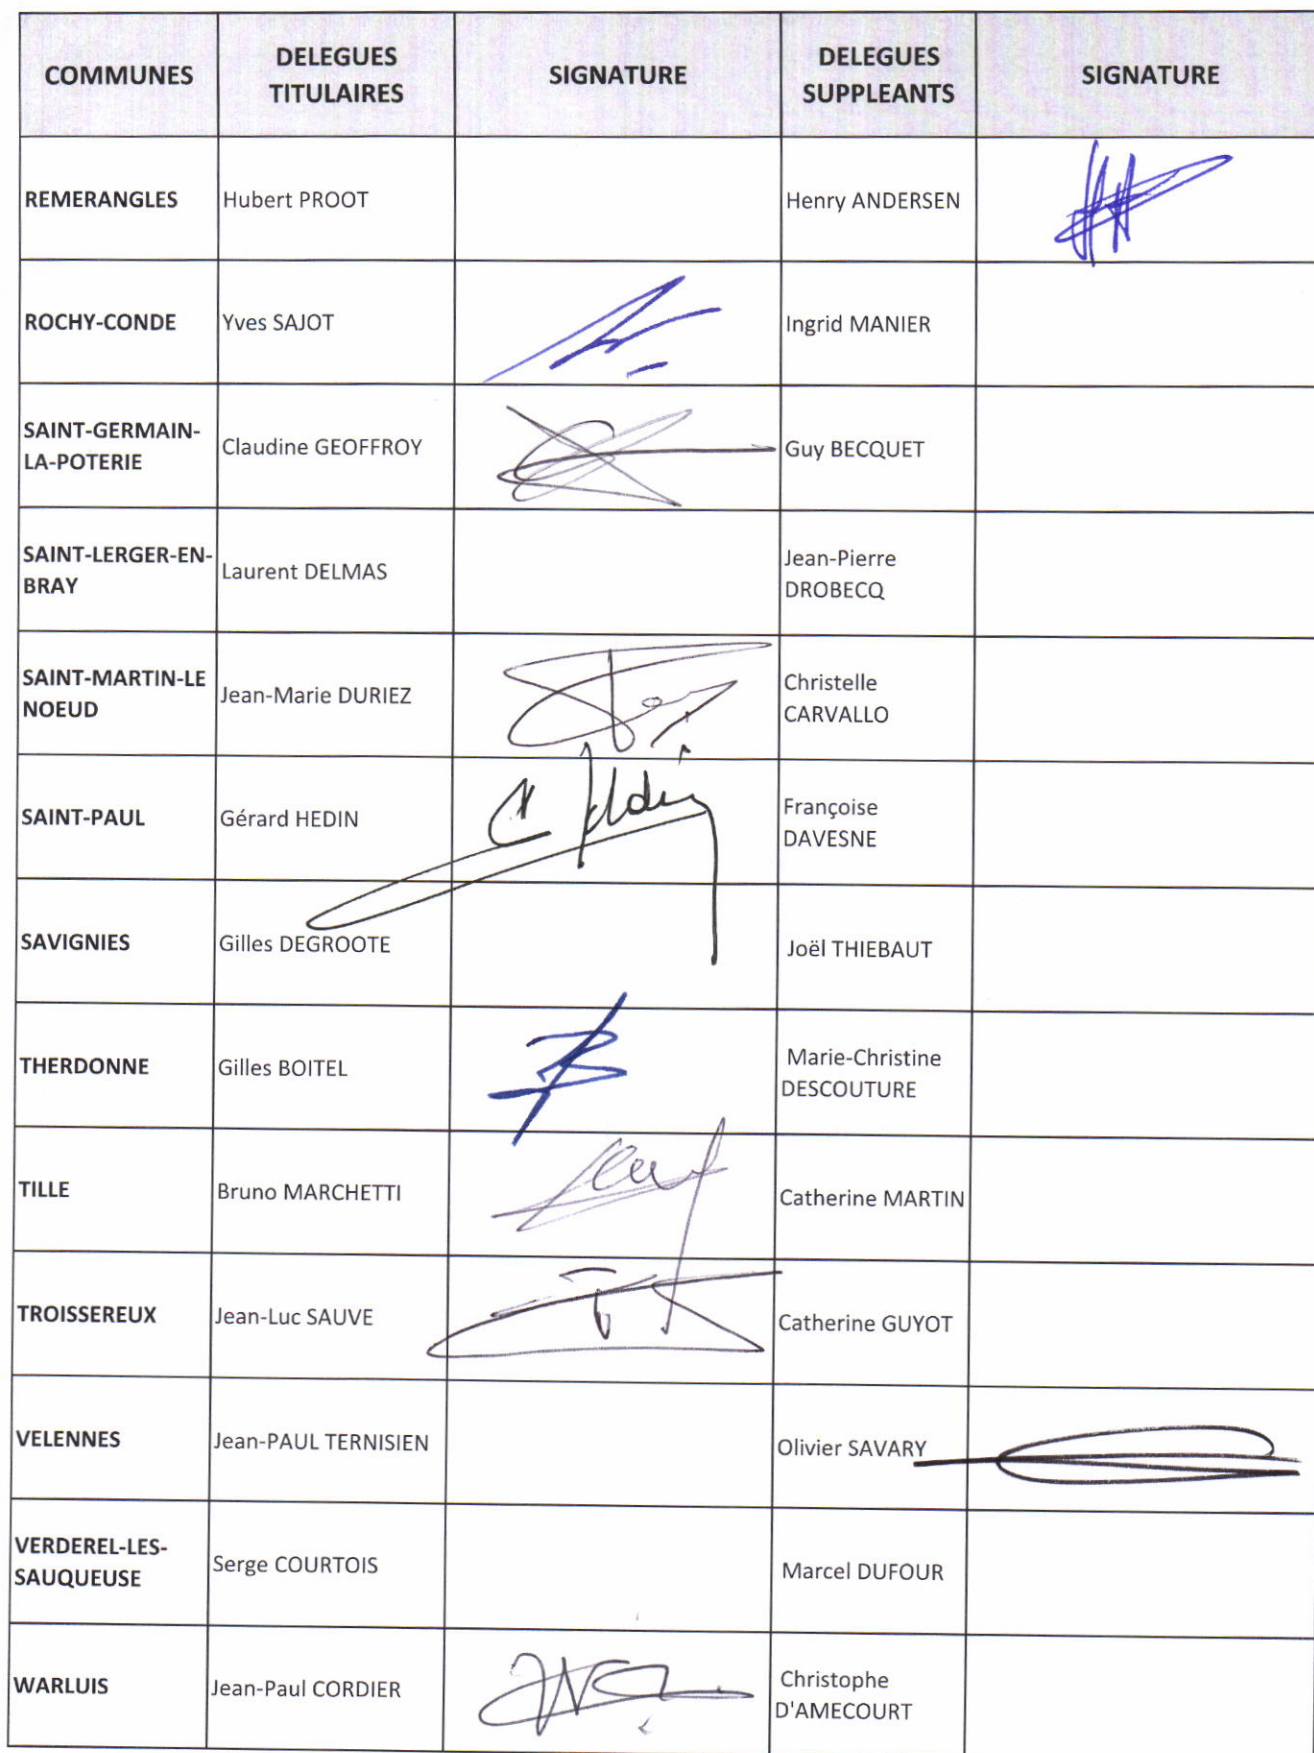 COMMUNES
DELEGUES
TITULAIRES
SIGNATURE
DELEGUES
SUPPLEANTS
SIGNATURE
REMERANGLES
Hubert PROOT
Henry ANDERSEN
ROCHY-CONDE
Yves SAJOT
Ingrid MANIER
SAINT-GERMAIN-
LA-POTERIE
Claudine GEOFFROY
Guy BECQUET
SAINT-LERGER-EN-
BRAY
Laurent DELMAS
Jean-Pierre
DROBECQ
SAINT-MARTIN-LE
NOEUD
Jean-Marie DURIEZ
Christelle
CARVALLO
SAINT-PAUL
Gérard HEDIN
Françoise
DAVESNE
SAVIGNIES
Gilles DEGROOTE
Joël THIEBAUT
THERDONNE
Gilles BOITEL
Marie-Christine
DESCOUTURE
TILLE
Bruno MARCHETTI
Catherine MARTIN
TROISSEREUX
Jean-Luc SAUVE
Catherine GUYOT
VELENNES
Jean-PAUL TERNISIEN
Olivier SAVARY
VERDEREL-LES-
SAUQUEUSE
Serge COURTOIS
Marcel DUFOUR
WARLUIS
Jean-Paul CORDIER
Christophe
D'AMECOURT